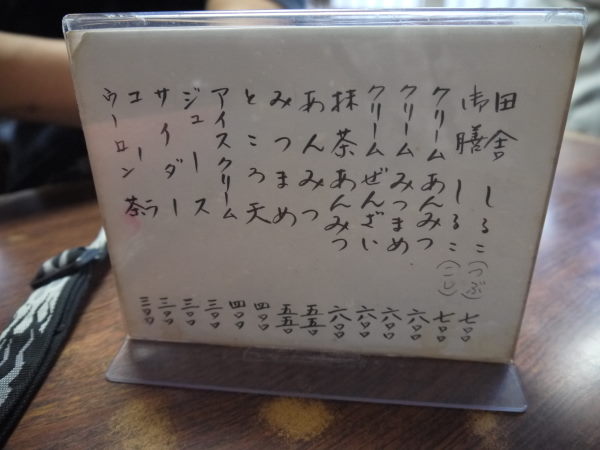 田舎 しるこ (つぶ) 七〇〇
御膳 しるこ (こし) 七〇〇
クリームあんみつ 六〇〇
クリームみつまめ 六〇〇
クリームぜんざい 六〇〇
抹茶あんみつ 六〇〇
あんみつ 五五〇
みつまめ 五五〇
ところ天 四〇〇
アイスクリーム 四〇〇
ジュース 三〇〇
サイダー 三〇〇
コーラ 三〇〇
ウーロン茶 三〇〇